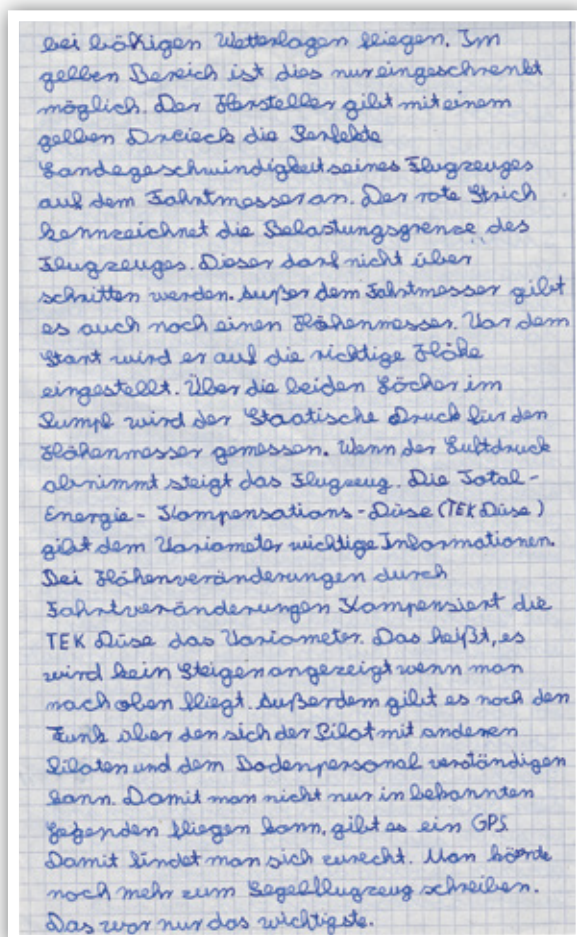 bei bökigen Wetterlagen fliegen. Im
gelben Bereich ist dies nur eingeschrenkt
möglich. Der Hersteller gibt mit einem
gelben Dreieck die Perfekte
Landegeschwindigkeit seines Flugzeuges
auf dem Fahrtmesser an. Der rote Strich
kennzeichnet die Belastungsgrenze des
Flugzeuges. Dieser darf nicht über
schritten werden. Außer dem Fahrtmesser gibt
es auch noch einen Höhenmesser. Vor dem
Start wird er auf die richtige Höhe
eingestellt. Über die beiden Löcher im
Rumpf wird der Staatische Druck für den
Höhenmesser gemessen. Wenn der Luftdruck
abnimmt steigt das Flugzeug. Die Total-
Energie-Kompensations-Düse (TEK Düse)
gibt dem Variometer wichtige Informationen.
Bei Höhenveränderungen durch
Fahrtveränderungen Kompensiert die
TEK Düse das Variometer. Das heißt, es
wird kein Steigen angezeigt wenn man
nach oben fliegt. Außerdem gibt es noch den
Funk über den sich der Pilot mit anderen
Piloten und dem Bodenpersonal verständigen
kann. Damit man nicht nur in bekannten
Gegenden fliegen kann, gibt es ein GPS.
Damit findet man sich zurecht. Man könnte
noch mehr zum Segelflugzeug schreiben.
Das war nur das wichtigste.